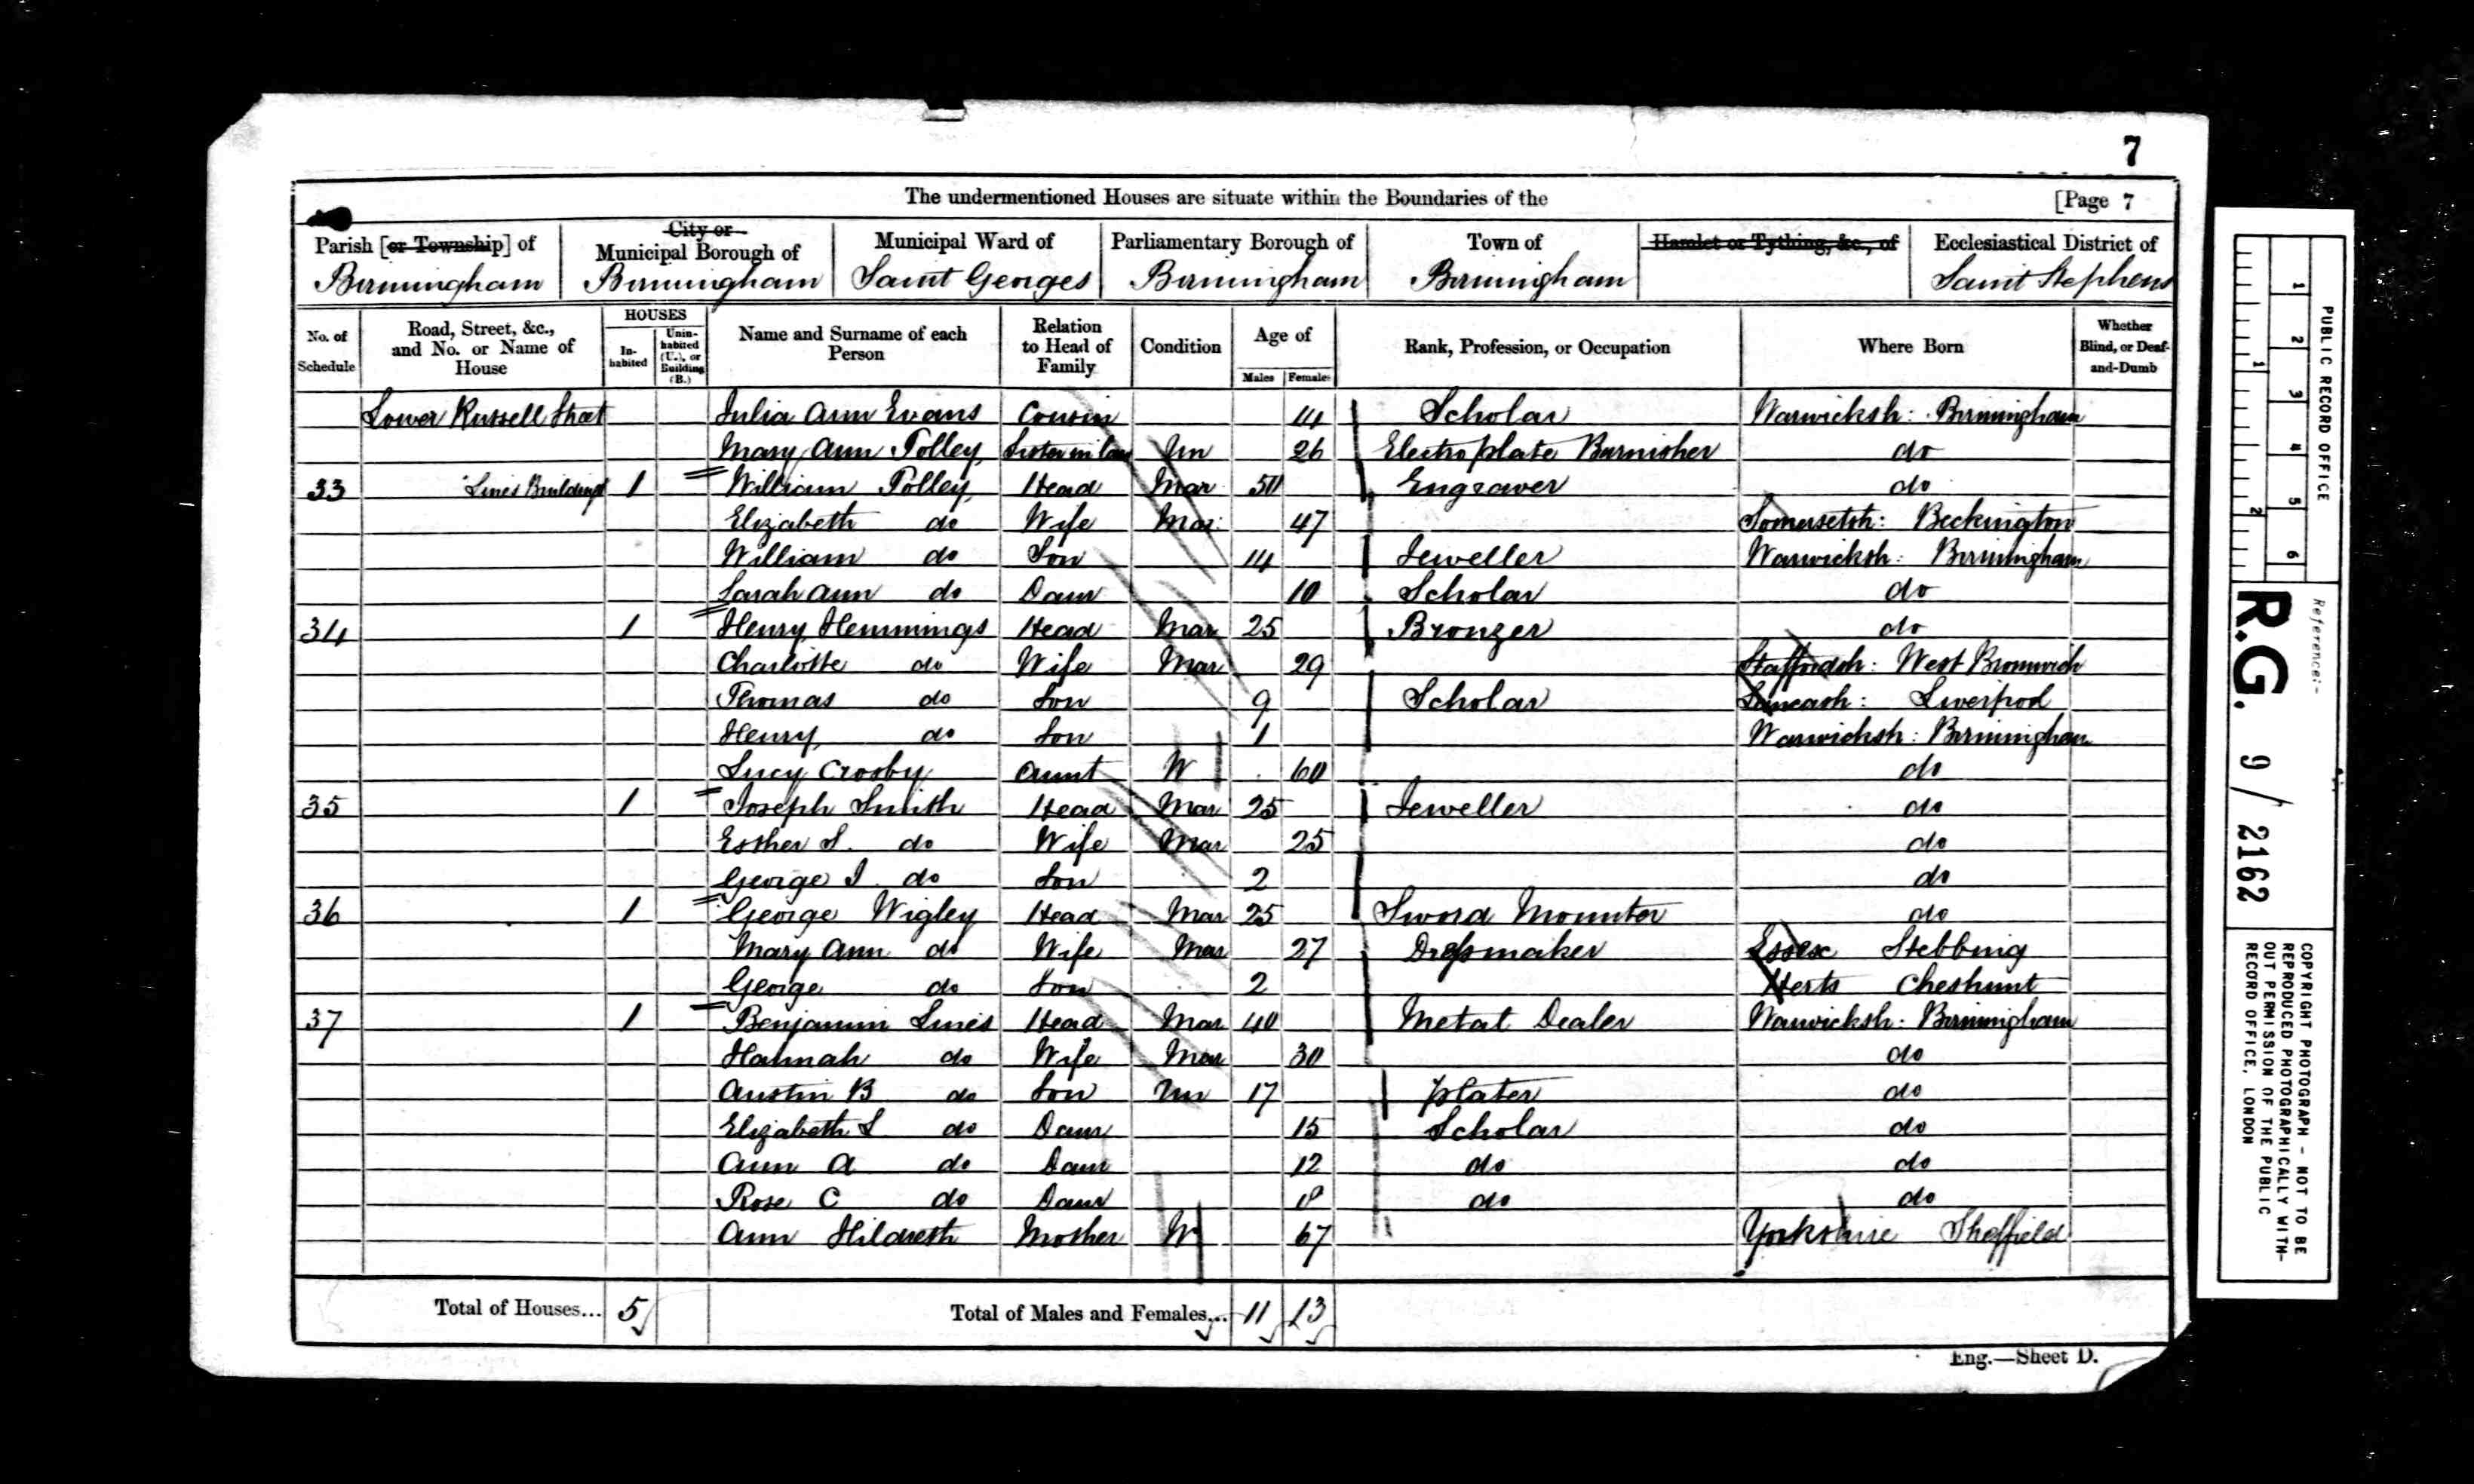 7
The undermentioned Houses are situate within the Boundaries of the [Page 7
Parish [or Township] of City or Municipal Borough of Municipal Ward of Parliamentary Borough of Town of Hamlet or Tything, &c., of Ecclesiastical District of
Birmingham Birmingham Saint Georges Birmingham Birmingham Saint Stephens
No. of Schedule Road, Street, &c., and No. or Name of House HOUSES Inhabited Uninhabited (U.), or Building (B.) Name and Surname of each Person Relation to Head of Family Condition Age of Males Females Rank, Profession, or Occupation Where Born Whether Blind, or Deaf-and-Dumb
Lower Russell Street Julia Ann Evans Cousin 14 Scholar Warwicksh: Birmingham
Mary Ann Polley Sister in law Un 26 Electro plate Burnisher do
33 Lines Buildings 1 William Polley Head Mar 50 Engraver do
Elizabeth do Wife Mar 47 Somersetsh: Beckington
William do Son 14 Jeweller Warwicksh: Birmingham
Sarah Ann do Daur 10 Scholar do
34 1 Henry Hemmings Head Mar 25 Bronzer do
Charlotte do Wife Mar 29 Staffordsh: West Bromwich
Thomas do Son 9 Scholar Lancash: Liverpool
Henry do Son 1 Warwicksh: Birmingham
Lucy Crosby Aunt W 60 do
35 1 Joseph Smith Head Mar 25 Jeweller do
Esther S. do Wife Mar 25 do
George J do Son 2 do
36 1 George Wigley Head Mar 25 Sword Mounter do
Mary Ann do Wife Mar 27 Dressmaker Essex Stebbing
George do Son 2 Herts Cheshunt
37 1 Benjamin Lines Head Mar 40 Metal Dealer Warwicksh: Birmingham
Hannah do Wife Mar 30 do
Austin B do Son Un 17 plater do
Elizabeth S do Daur 15 Scholar do
Ann A do Daur 12 do do
Rose C do Daur do do
Ann Hildreth Mother W 67 Yorkshire Sheffield
Total of Houses... 5 Total of Males and Females... 11 13
Eng.—Sheet D.
PUBLIC RECORD OFFICE
1 2 3 4 5 6
1 2
Reference:-
R.G. 9/2162
COPYRIGHT PHOTOGRAPH - NOT TO BE
REPRODUCED PHOTOGRAPHICALLY WITH-
OUT PERMISSION OF THE PUBLIC
RECORD OFFICE, LONDON